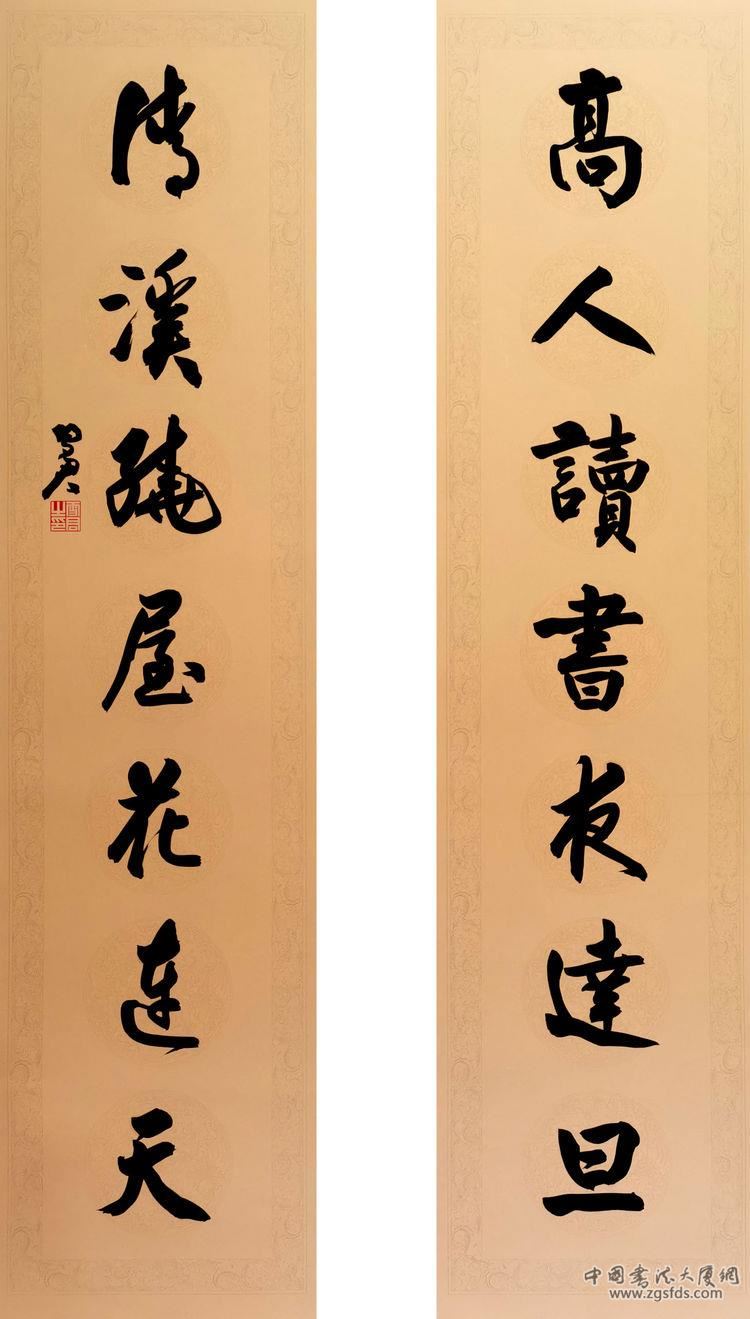 高人讀書夜達旦
清溪繞屋花連天
中国书法大厦网
www.zgsfds.com